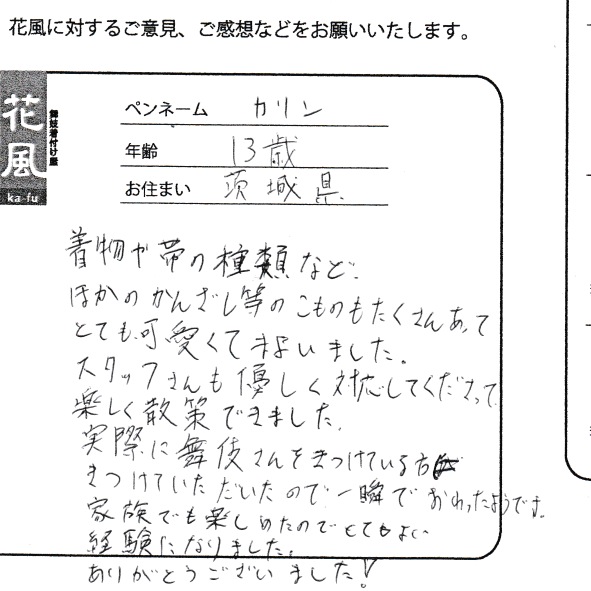 花風に対するご意見、ご感想などをお願いいたします。
花風
舞妓着付け屋
ka-fu
ペンネーム カリン
年齢 13歳
お住まい 茨城県
着物や帯の種類など、
ほかのかんざし等のこものもたくさんあって
とても可愛くてまよいました。
スタッフさんも優しく対応してくださって
楽しく散策できました。
実際に舞伎さんをきつけている方に
きつけていただいたので一瞬でおわったようです。
家族でも楽しめたのでとてもよい
経験になりました。
ありがとうございました!